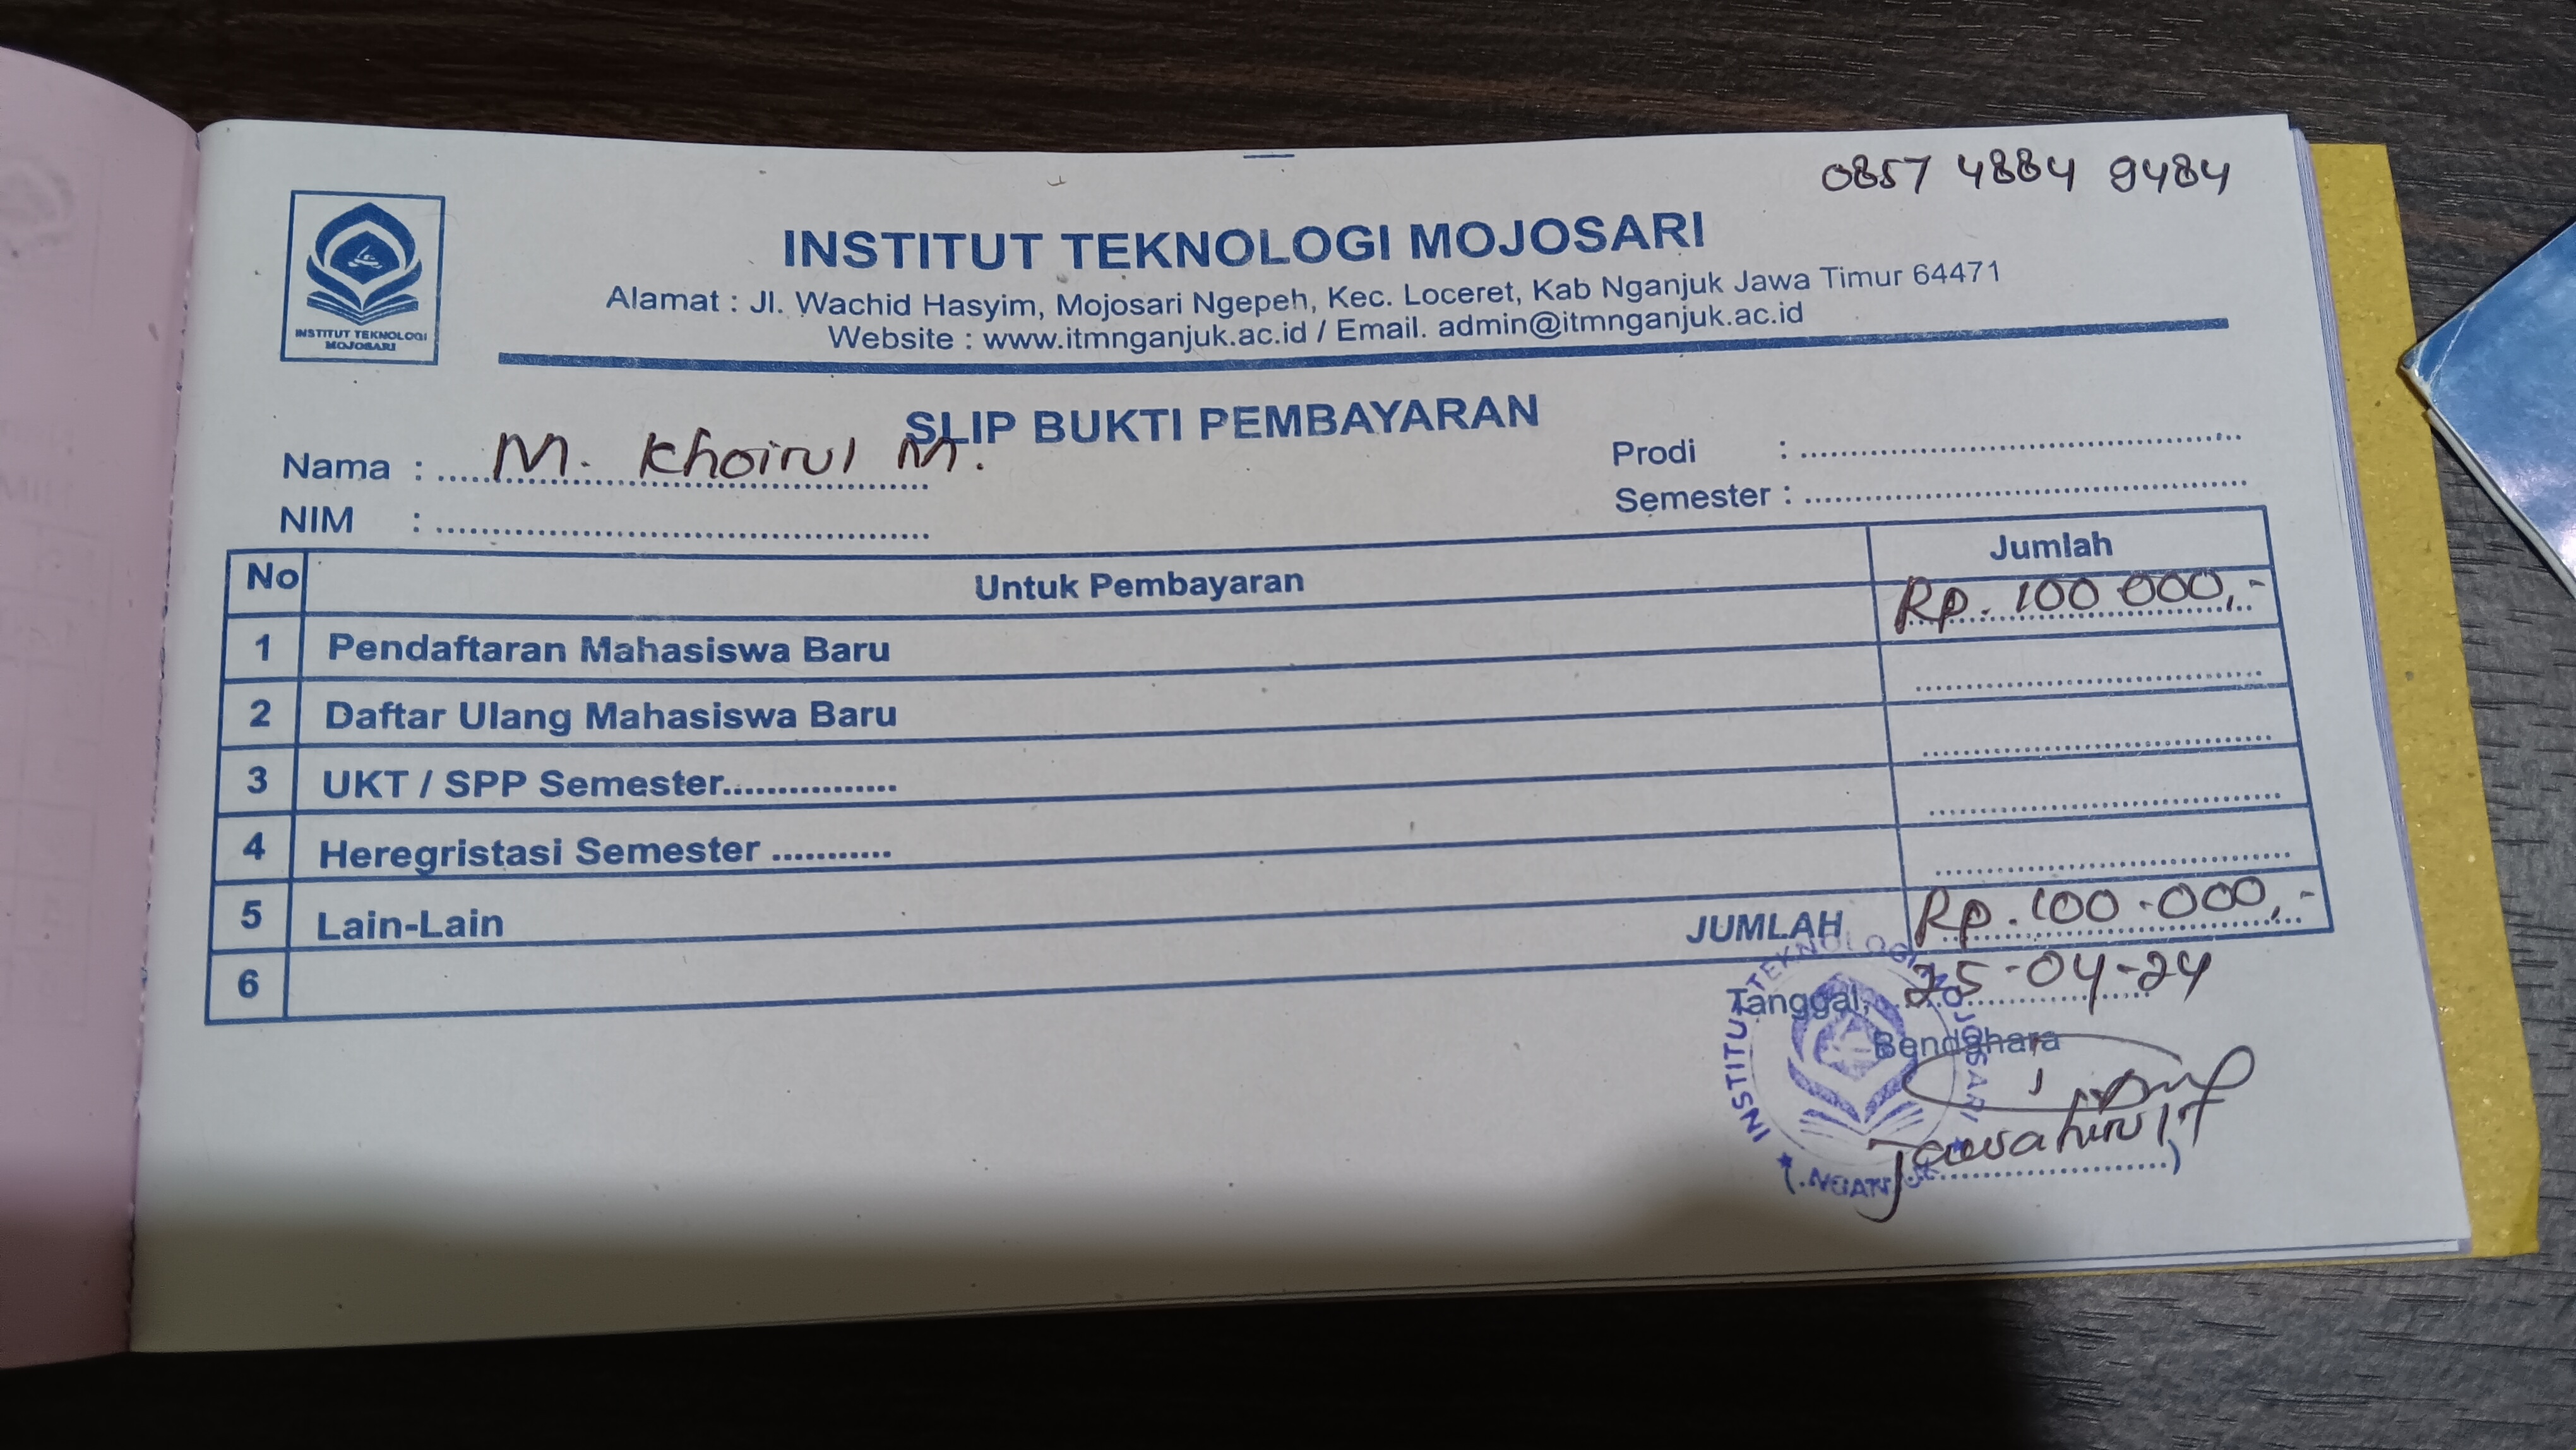 0857 4884 9484
INSTITUT TEKNOLOGI MOJOSARI
INSTITUT TEKNOLOGI
MOJOSARI
Alamat : Jl. Wachid Hasyim, Mojosari Ngepeh, Kec. Loceret, Kab Nganjuk Jawa Timur 64471
Website : www.itmnganjuk.ac.id / Email. admin@itmnganjuk.ac.id
SLIP BUKTI PEMBAYARAN
Nama : M. Khoirul M.
Prodi :
NIM :
Semester :
No Untuk Pembayaran Jumlah
1 Pendaftaran Mahasiswa Baru Rp. 100 000,-
2 Daftar Ulang Mahasiswa Baru
3 UKT / SPP Semester................
4 Heregristasi Semester ...........
5 Lain-Lain
6
JUMLAH Rp. 100.000,-
Tanggal, 25-04-24
Bendahara
INSTITUT TEKNOLOGI MOJOSARI
NGANJUK